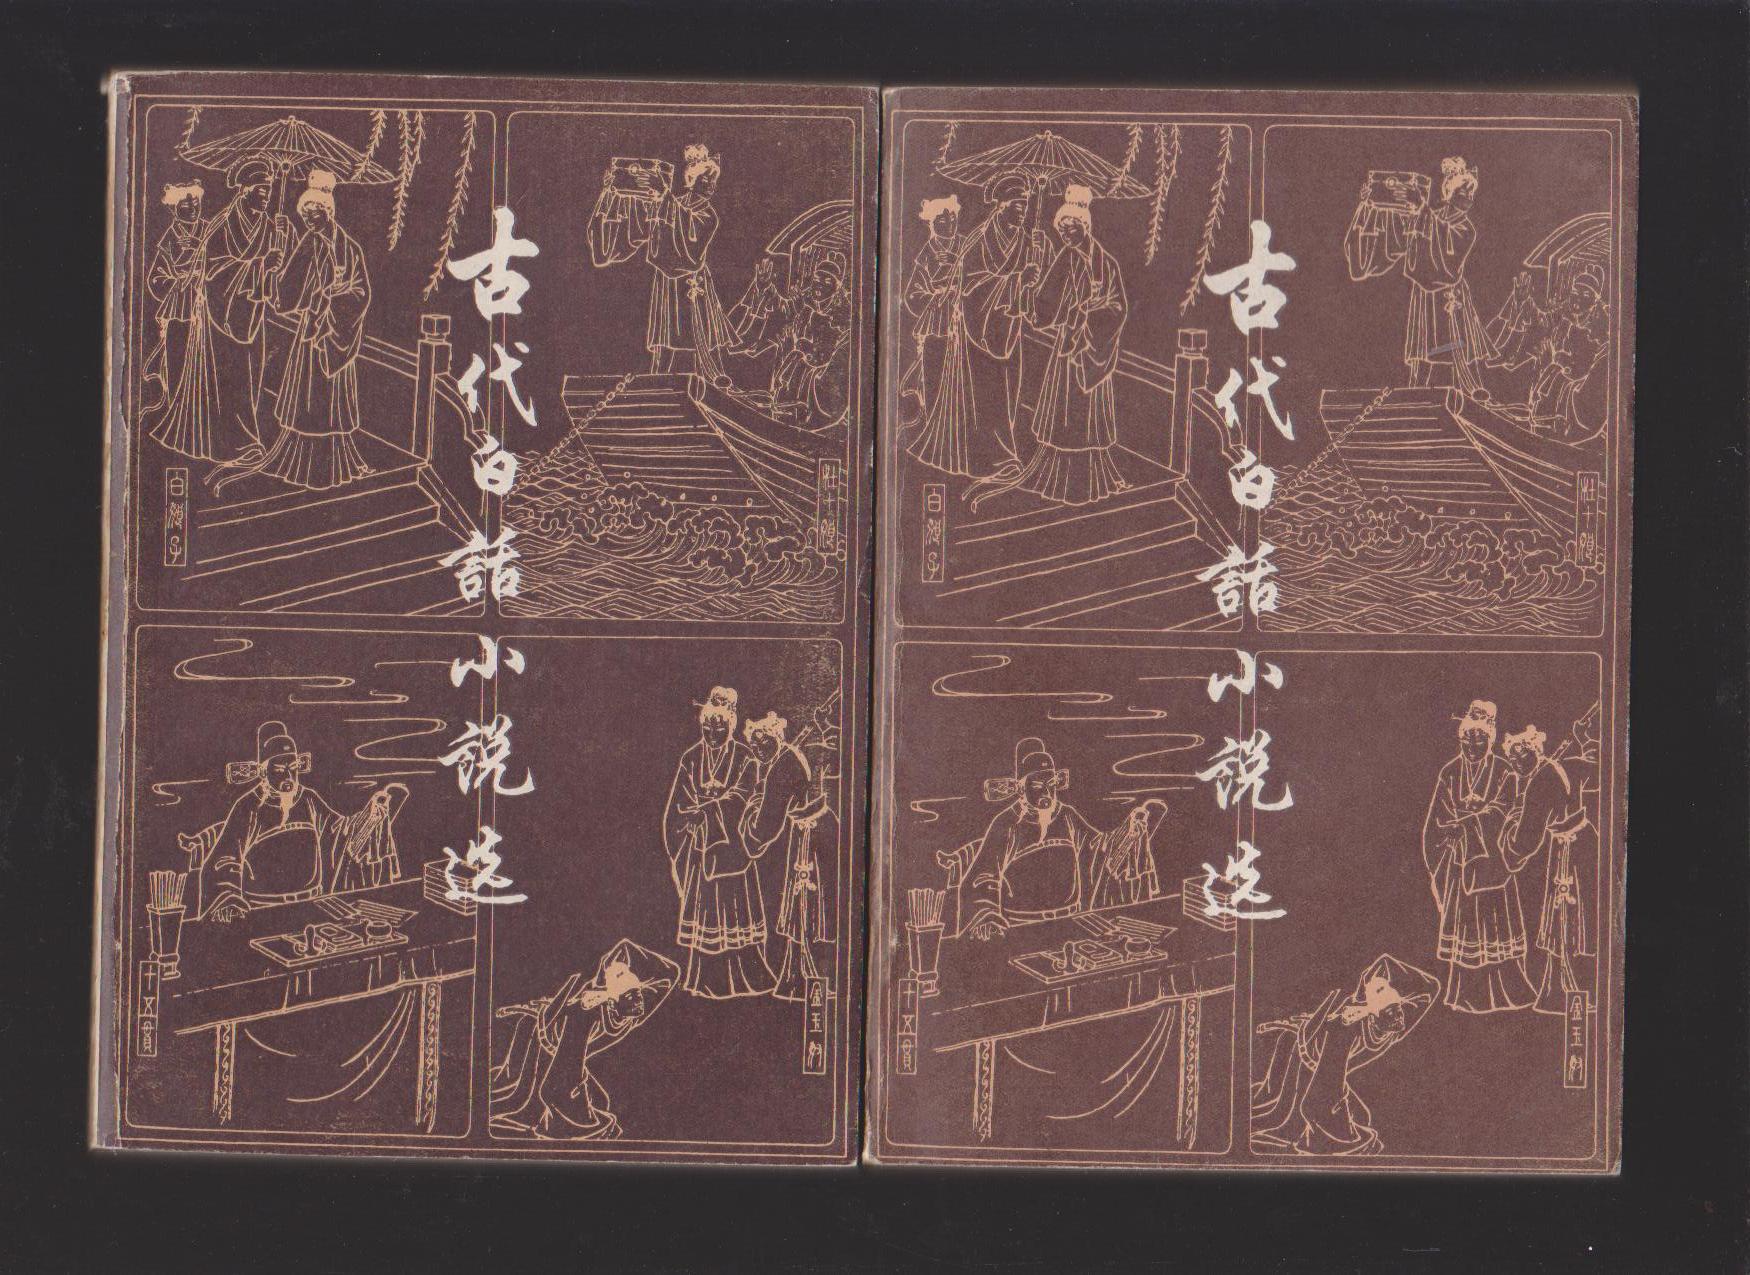 古代白話小説选
白娘子
杜十娘
十五貫
金玉奴
古代白話小説选
白娘子
杜十娘
十五貫
金玉奴